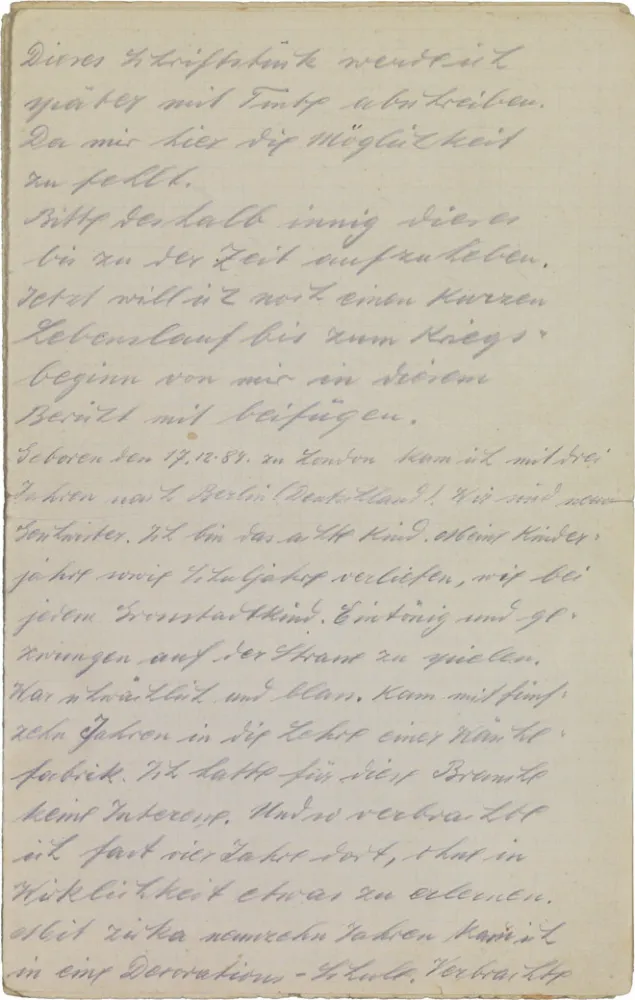 Dieses Schriftstück werde ich
später mit Tinte abschreiben.
Da mir hier die Möglichkeit
zu fehlt.
Bitte deshalb innig dieses
bis zu der Zeit aufzuheben.
Jetzt will ich noch einen kurzen
Lebenslauf bis zum Kriegs-
beginn von mir in diesem
Bericht mit beifügen.
Geboren den 17.12.84. zu London kam ich mit drei
Jahren nach Berlin (Deutschland)! Wir sind neun
Geschwister. Ich bin das achte Kind. Meine Kinder-
jahre sowie Schuljahre verliefen, wie bei
jedem Grosstadtkind. Eintönig und ge-
zwungen auf der Strasse zu spielen.
War schwächlich und blass. Kam mit fünf-
zehn Jahren in die Lehre einer Wäsche-
fabrik. Ich hatte für diese Branche
keine Interesse. Und so verbrachte
ich fast vier Jahre dort, ohne in
Wirklichkeit etwas zu erlernen.
Mit zirka neunzehn Jahren kam ich
in eine Decorations-Schule. Verbrachte